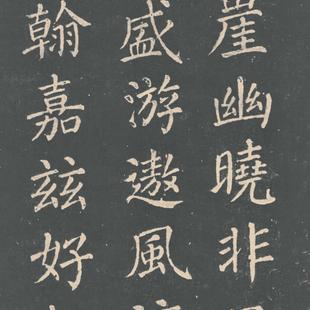 崖幽曉非
盛游遨風
翰嘉茲好